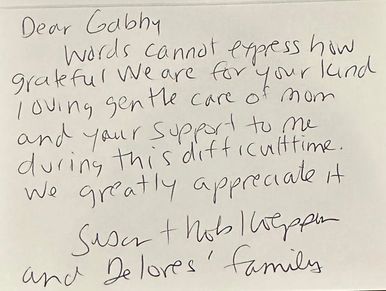 Dear Gabby
Words cannot express how
grateful we are for your kind
loving gentle care of mom
and your support to me
during this difficult time.
we greatly appreciate it
Susan + Rob
and Delores' family